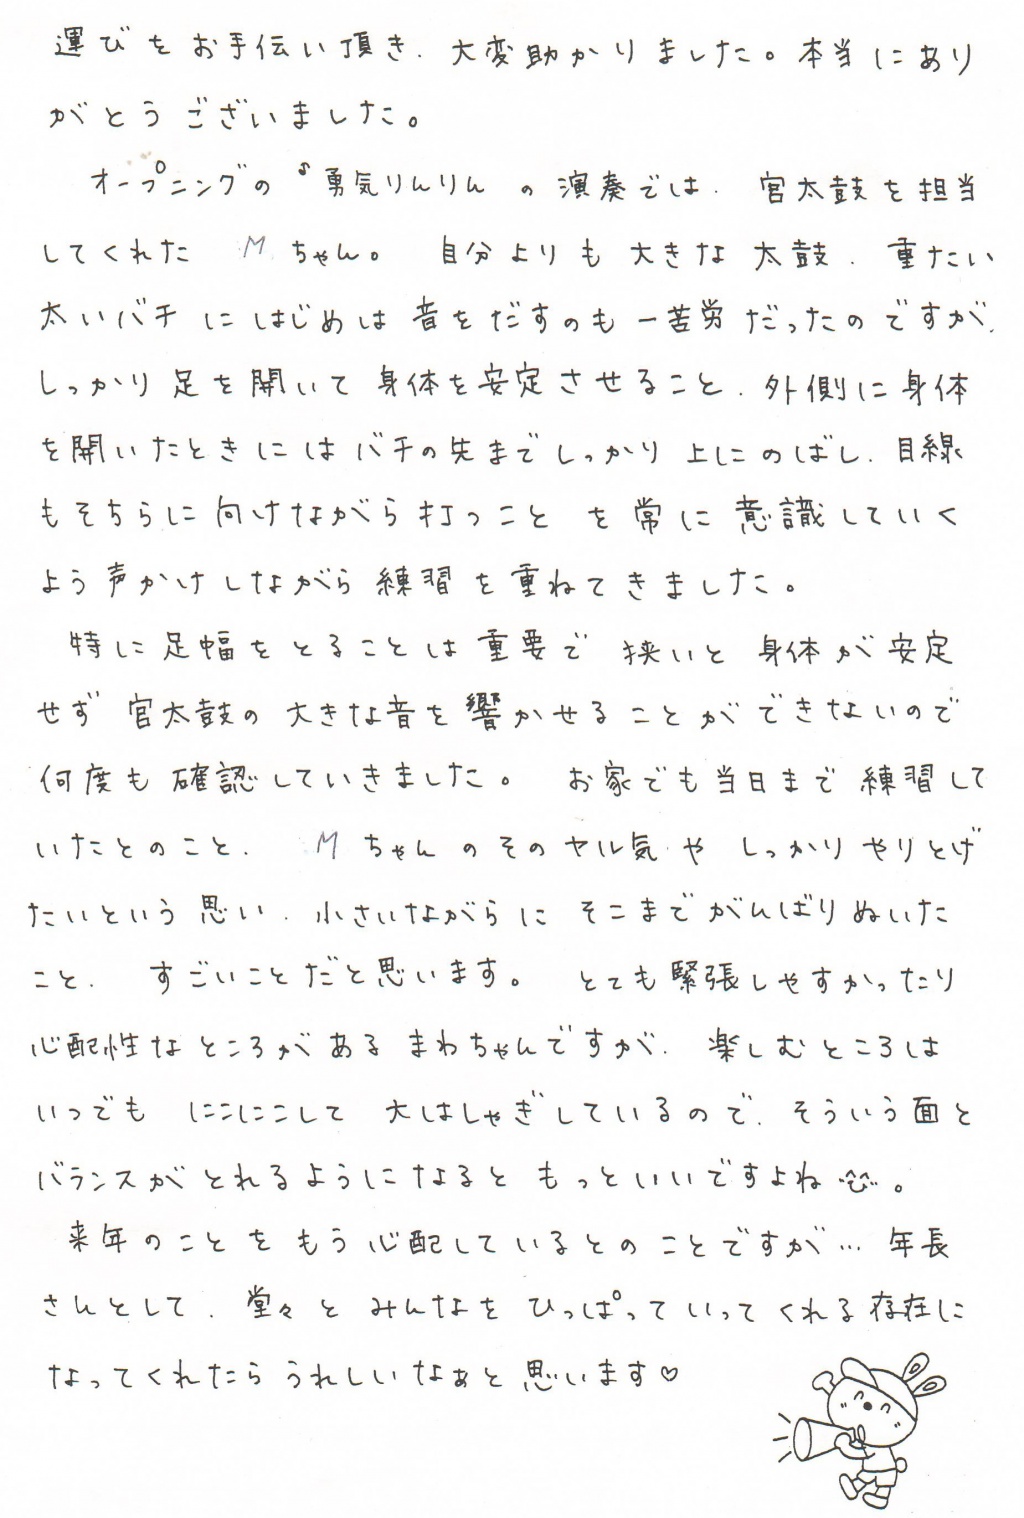 運びをお手伝い頂き、大変助かりました。本当にあり
がとうございました。
オープニングの〝勇気りんりん〟の演奏では、宮太鼓を担当
してくれた Mちゃん。自分よりも大きな太鼓、重たい
太いバチにはじめは音をだすのも一苦労だったのですが、
しっかり足を開いて身体を安定させること、外側に身体
を開いたときにはバチの先までしっかり上にのばし、目線
もそちらに向けながら打つことを常に意識していく
よう声かけしながら練習を重ねてきました。
特に足幅をとることは重要で狭いと身体が安定
せず宮太鼓の大きな音を響かせることができないので
何度も確認していきました。お家でも当日まで練習して
いたとのこと、Mちゃんのそのヤル気やしっかりやりとげ
たいという思い、小さいながらにそこまでがんばりぬいた
こと、すごいことだと思います。とても緊張しやすかったり
心配性なところがあるまわちゃんですが、楽しむところは
いつでもにこにこして大はしゃぎしているので、そういう面と
バランスがとれるようになるともっといいですよね^^。
来年のことをもう心配しているとのことですが…年長
さんとして、堂々とみんなをひっぱっていってくれる存在に
なってくれたらうれしいなぁと思います♡